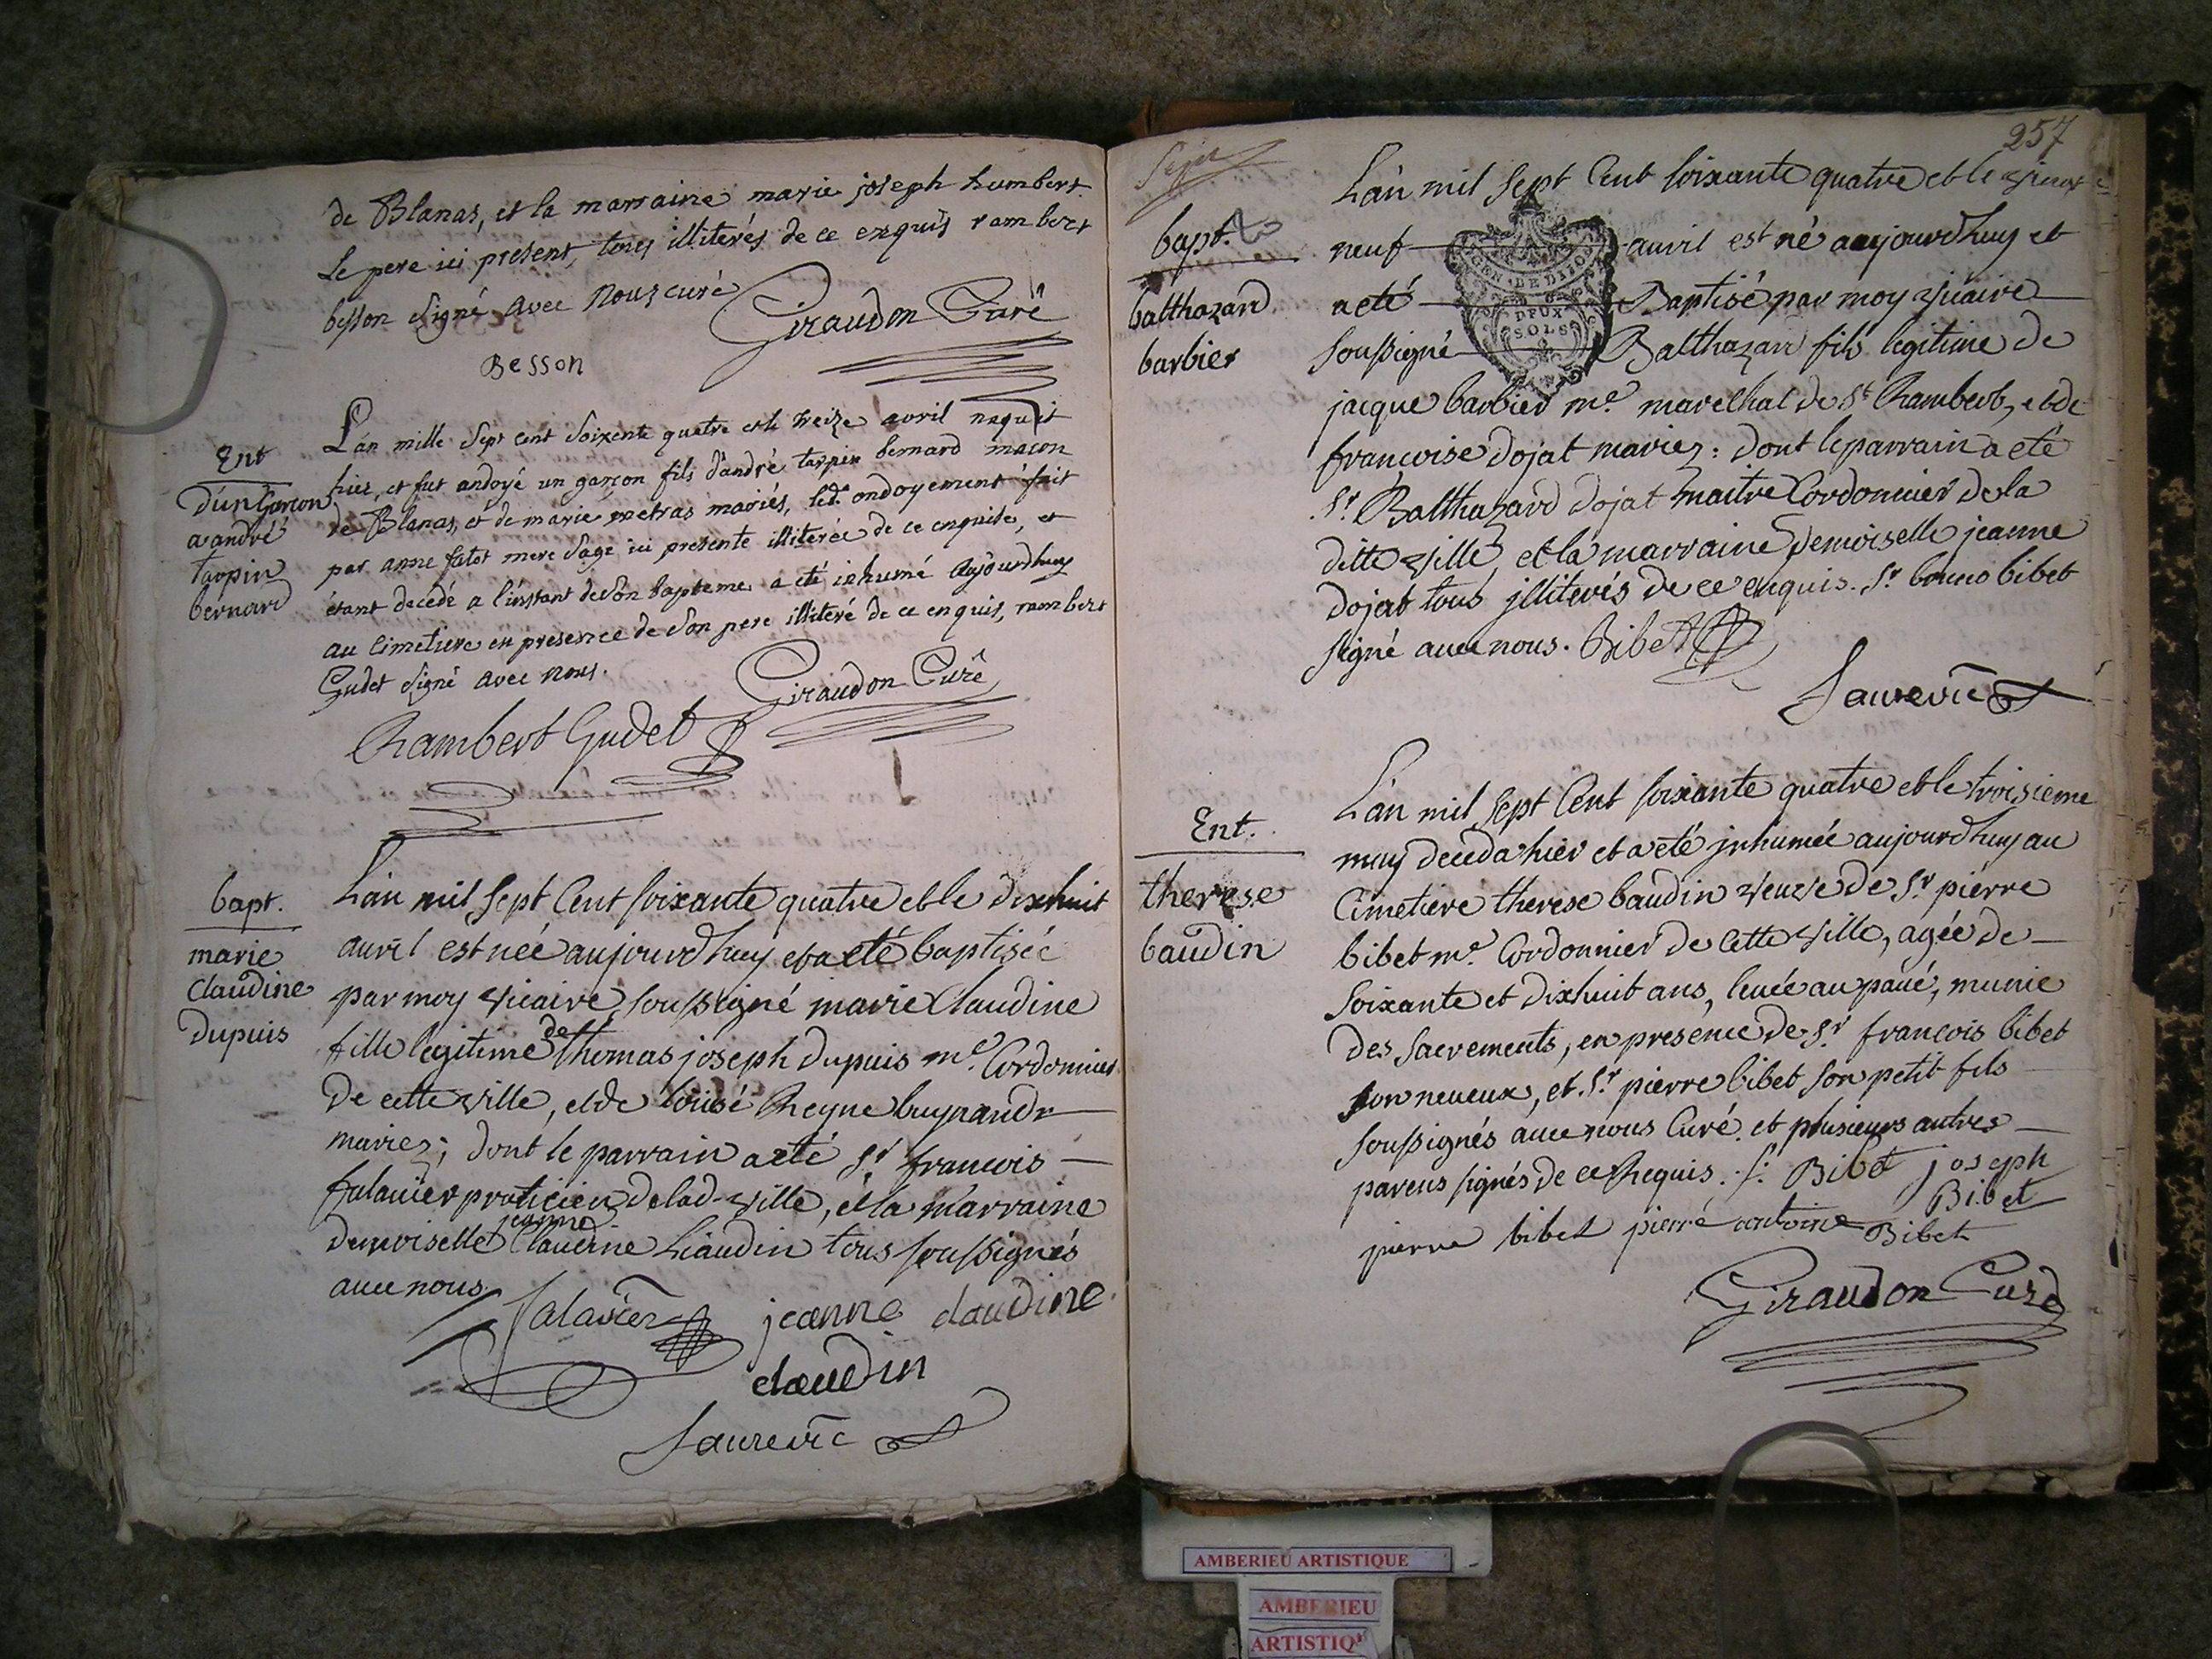 de Blanas, et la marraine marie joseph humbert
le pere ici present, tous illiterés de ce enquis rambert
besson signé avec nous curé
Giraudon Curé
Besson
Ent
d'un garcon
a andré
tarpin
bernard
L'an mille sept cent soixente quatre et le treize avril naquit
hier, et fut andoyé un garçon fils d'andré tarpin bernard maçon
de Blanas, et de marie metras mariés, led. ondoyement fait
par anne fatet mere sage ici presente illiterée de ce enquise, et
étant decedé a l'instant de son bapteme a eté inhumé aujourdhuy
au cimetiere en presence de son pere illiteré de ce enquis, rambert
Gudet signé avec nous.
Giraudon Curé
Rambert Gudet
bapt.
marie
claudine
dupuis
L'an mil sept Cent soixante quatre et le dixhuit
avril est née aujourdhuy et a eté baptisée
par moy vicaire soussigné marie Claudine
fille legitime de thomas joseph dupuis me. Cordonnier
de cette ville, et de louise Reyne
mariez; dont le parrain a eté Sr. francois
falavier praticien de lad. ville, et la marraine
demoiselle jeanne Claudine Liaudin tous soussignés
avec nous.
falavier jeanne claudine
claudin
Saurevic
257
bapt.
balthazard
barbier
L'an mil sept Cent soixante quatre et le vient
neuf avril est né aujourdhuy et
a eté Baptisé par moy vicaire
soussigné Balthazard fils legitime de
GEN. DE DIJON
DEUX
SOLS
jacque barbier me. marechal de St. Rambert, et de
françoise dojat mariez: dont le parrain a eté
Sr. Balthazard dojat maitre Cordonnier de la
ditte ville et la marraine demoiselle jeanne
dojat tous jlliterés de ce enquis. Sr. bibet
signé avec nous. Bibet
Saurevic
Ent.
therese
baudin
L'an mil sept Cent soixante quatre et le troisieme
may deceda hier et a eté jnhumée aujourdhuy au
Cimetiere therese baudin veuve de Sr. pierre
bibet me. Cordonnier de cette ville, agée de
soixante et dixhuit ans, levée au pavé, munie
des sacrements, en presence de Sr. francois bibet
son neveux, et Sr. pierre bibet son petit fils
soussignés avec nous Curé. et plusieurs autres
parens signés de ce Requis. f. Bibet joseph
Bibet
pierre bibet pierre antoine Bibet
Giraudon Curé
AMBERIEU ARTISTIQUE
AMBERIEU
ARTISTIQ